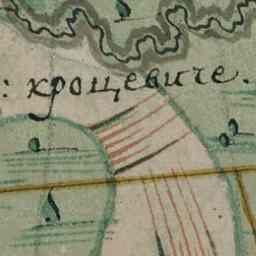 : хроцевиче.